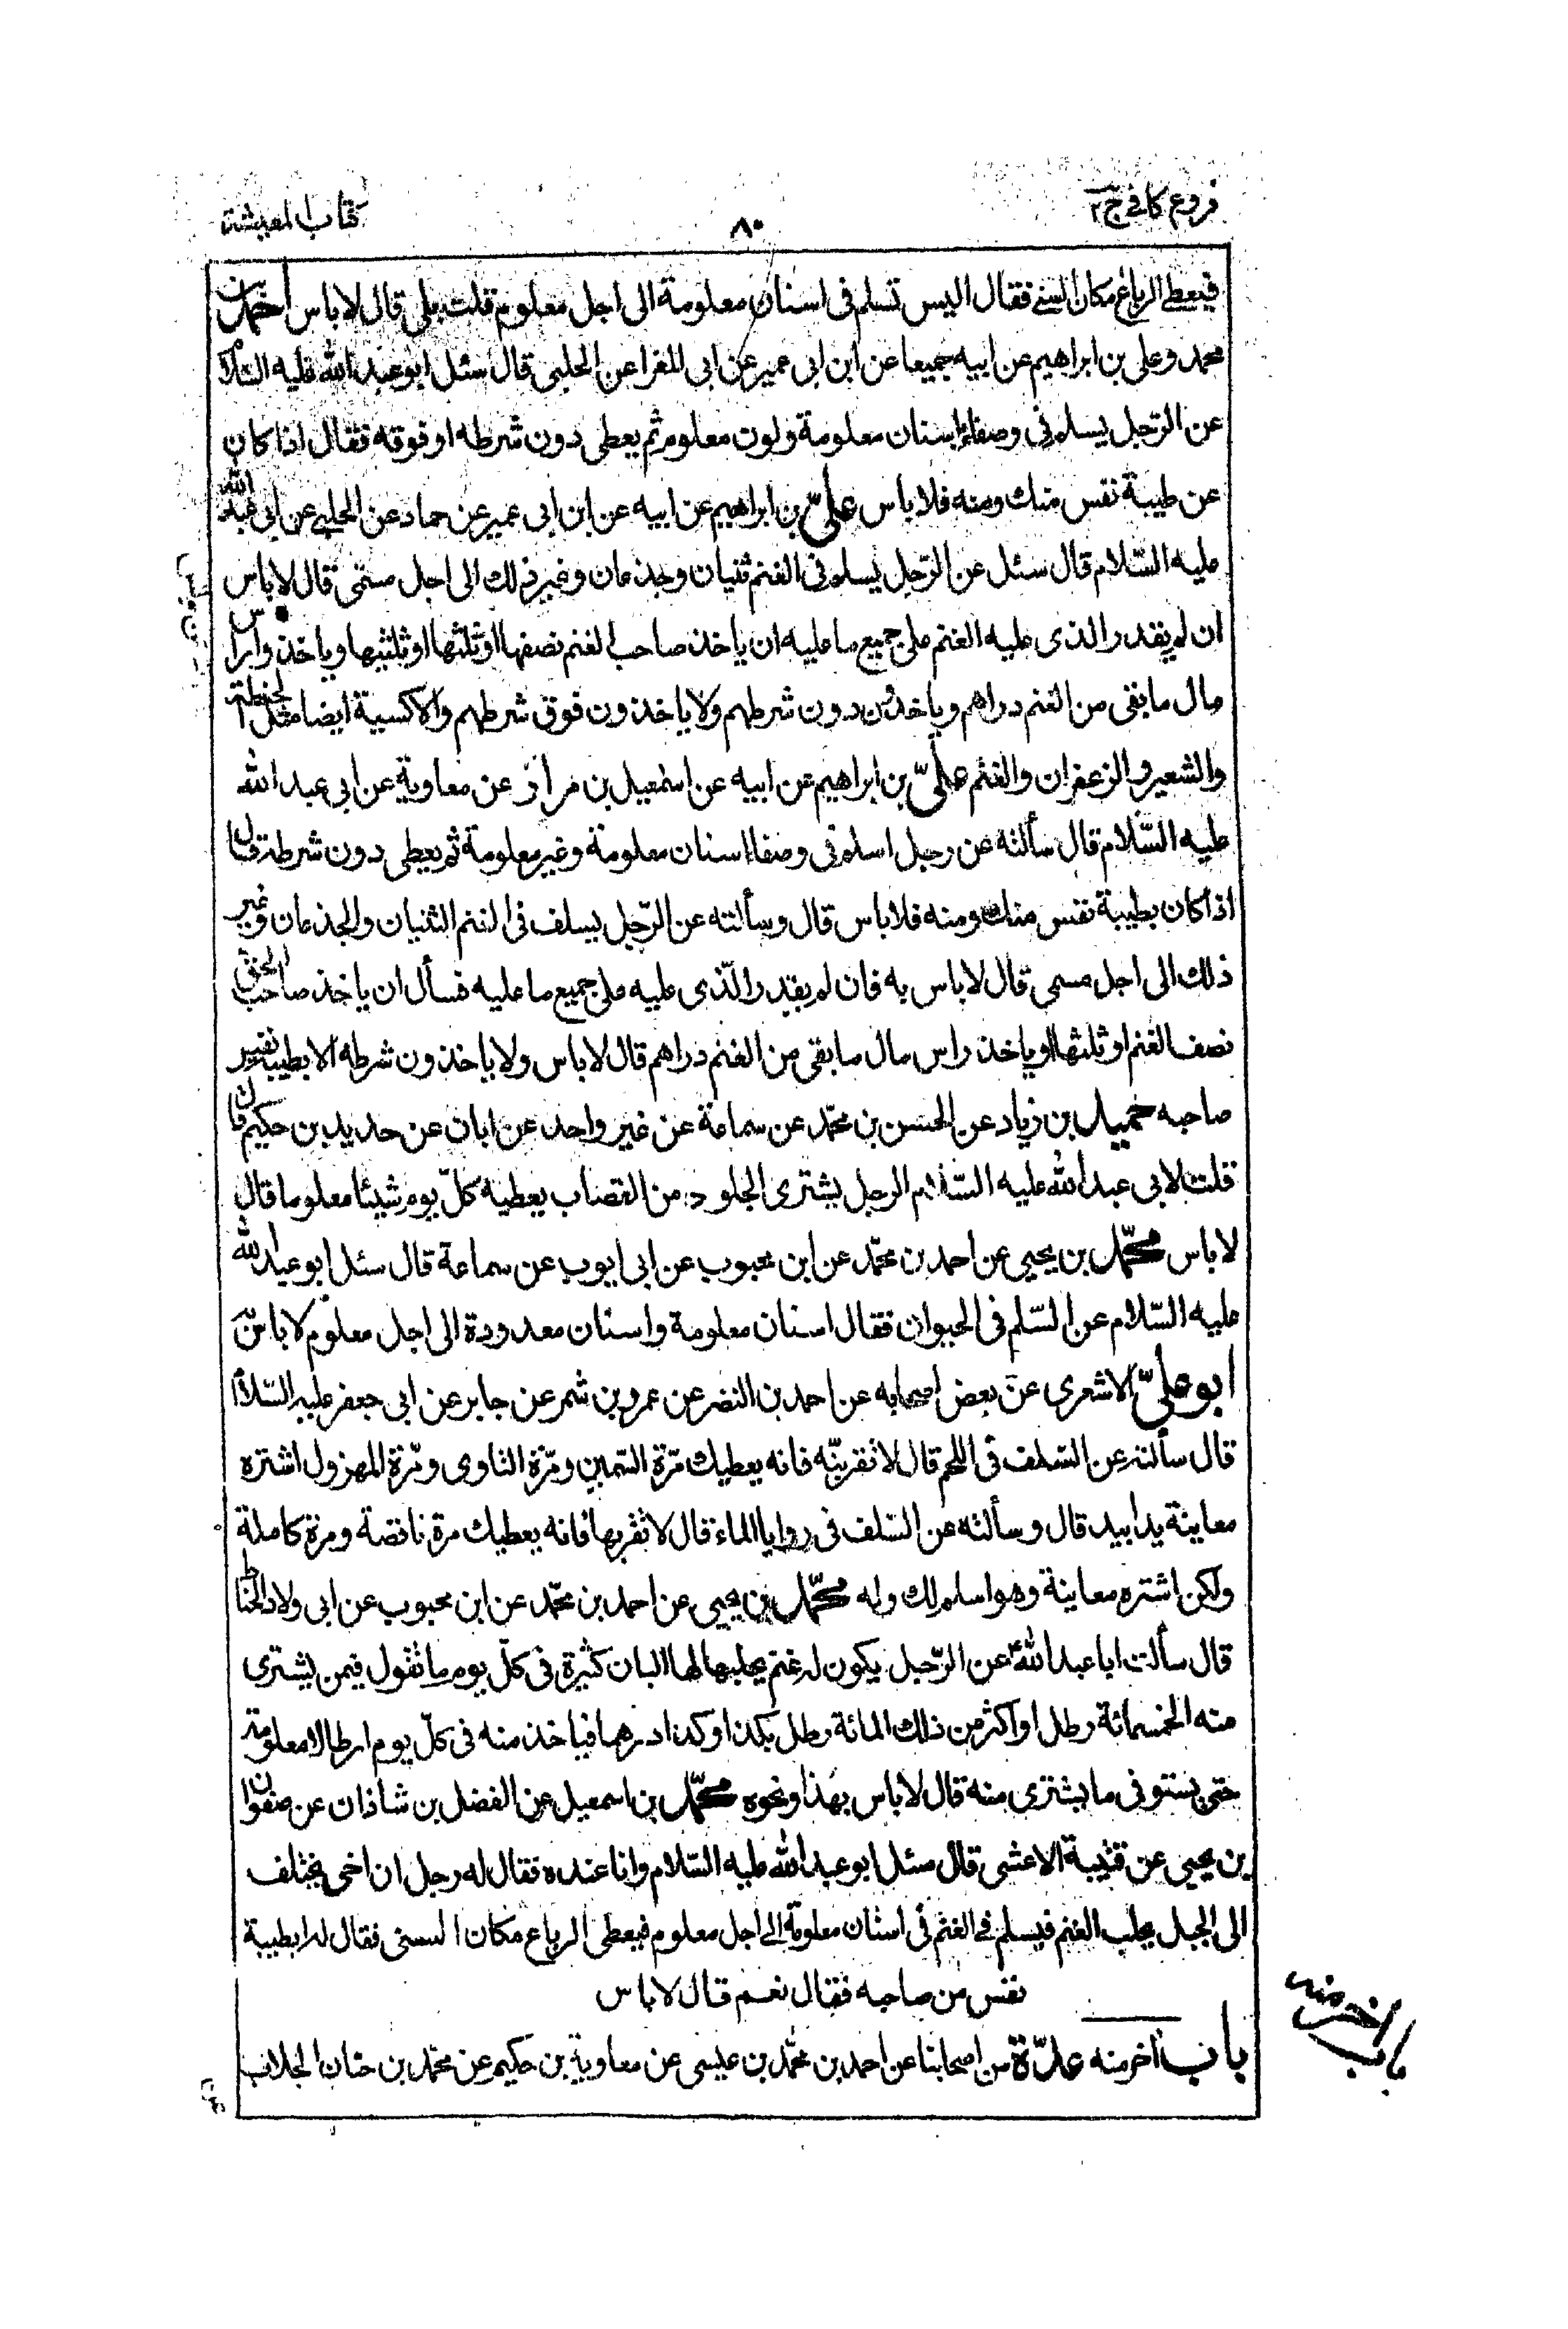 فروع كافى ج٢
٨٠
كتاب المعيشة
فيعطى الرباع مكان الثنى فقال اليس تسلم فى اسنان معلومة الى اجل معلوم قلت بلى قال لا باس احمد بن
محمد وعلى بن ابراهيم عن ابيه جميعا عن ابن ابى عمير عن ابى المغرا عن الحلبى قال سئل ابو عبد الله عليه السّلام
عن الرّجل يسلم فى وصفاء اسنان معلومة ولون معلوم ثم يعطى دون شرطه او فوقه فقال اذا كان
عن طيبة نفس منك ومنه فلا باس علىّ بن ابراهيم عن ابيه عن ابن ابى عمير عن حماد عن الحلبى عن ابى عبد الله
عليه السّلام قال سئل عن الرّجل يسلم فى الغنم ثنيان وجذعان وغير ذلك الى اجل مسمّى قال لا باس
ان لم يقدر الذى عليه الغنم على جميع ما عليه ان ياخذ صاحب الغنم نصفها او ثلثها او ثلثيها وياخذوا راس
مال ما بقى من الغنم دراهم وياخذون دون شرطهم ولا ياخذون فوق شرطهم والاكسية ايضا مثل الحنطة
والشعير والزعفران والغنم علىّ بن ابراهيم عن ابيه عن اسمعيل بن مرار عن معاوية عن ابى عبد الله
عليه السّلام قال سألته عن رجل اسلم فى وصفا اسنان معلومة وغير معلومة ثم يعطى دون شرطه قال
اذا كان بطيبة نفس منك ومنه فلا باس قال وسألته عن الرّجل يسلف فى الغنم الثنيان والجذعان وغير
ذلك الى اجل مسمى قال لا باس به فان لم يقدر الّذى عليه على جميع ما عليه فسأل ان ياخذ صاحب الحق
نصف الغنم او ثلثها او ياخذ راس مال ما بقى من الغنم دراهم قال لا باس ولا ياخذ دون شرطه الا بطيبة نفس
صاحبه حميد بن زياد عن الحسن بن محمّد عن سماعة عن غير واحد عن ابان عن حديد بن حكيم قال
قلت لابى عبد الله عليه السّلام الرجل يشترى الجلود من القصّاب يعطيه كلّ يوم شيئا معلوما قال
لا باس محمّد بن يحيى عن احمد بن محمّد عن ابن محبوب عن ابى ايوب عن سماعة قال سئل ابو عبد الله
عليه السّلام عن السّلم فى الحيوان فقال اسنان معلومة واسنان معدودة الى اجل معلوم لا باس به
ابو علىّ الاشعرى عن بعض اصحابه عن احمد بن النضر عن عمرو بن شمر عن جابر عن ابى جعفر عليه السّلام
قال سألته عن السّلف فى اللحم قال لا تقربنّه فانه يعطيك مرّة السّمين ومرّة التاوى ومرّة المهزول اشتره
معاينة يدا بيد قال وسألته عن السّلف فى روايا الماء قال لا تقربها فانه يعطيك مرة ناقصة ومرة كاملة
ولكن اشتره معاينة وهو اسلم لك وله محمّد بن يحيى عن احمد بن محمّد عن ابن محبوب عن ابى ولاد الحنّاط
قال سألت ابا عبد الله ع عن الرّجل يكون له غنم يحلبها لها البان كثيرة فى كلّ يوم ما تقول فيمن يشترى
منه الخمسمائة رطل او اكثر من ذلك المائة رطل بكذا وكذا درهما فياخذ منه فى كلّ يوم ارطالا معلومة
حتى يستوفى ما يشترى منه قال لا باس بهذا ونحوه محمّد بن اسمعيل عن الفضل بن شاذان عن صفوان
بن يحيى عن قتيبة الاعشى قال سئل ابو عبد الله عليه السّلام وانا عنده فقال له رجل ان اخى يختلف
الى الجبل يجلب الغنم فيسلم فى الغنم فى اسنان معلومة الى اجل معلوم فيعطى الرباع مكان الثنى فقال له ابطيبة
نفس من صاحبه فقال نعم قال لا باس
باب آخر منه عدّة من اصحابنا عن احمد بن محمّد بن عيسى عن معاوية بن حكيم عن محمّد بن حنان الجلاب
باب اخر منه